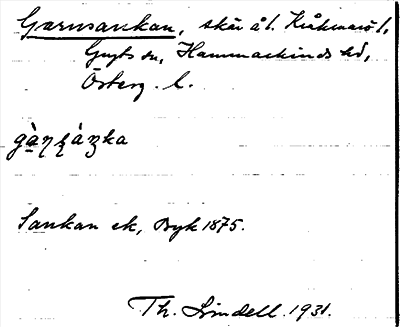 Garnsankan, skär å l. Kråkmarö l,
Gryts sn, Hammarkinds hd,
Österg. l.
gàn̥ʂàŋka
Sankan ek, Byk 1875.
Th. Lindell. 1931.